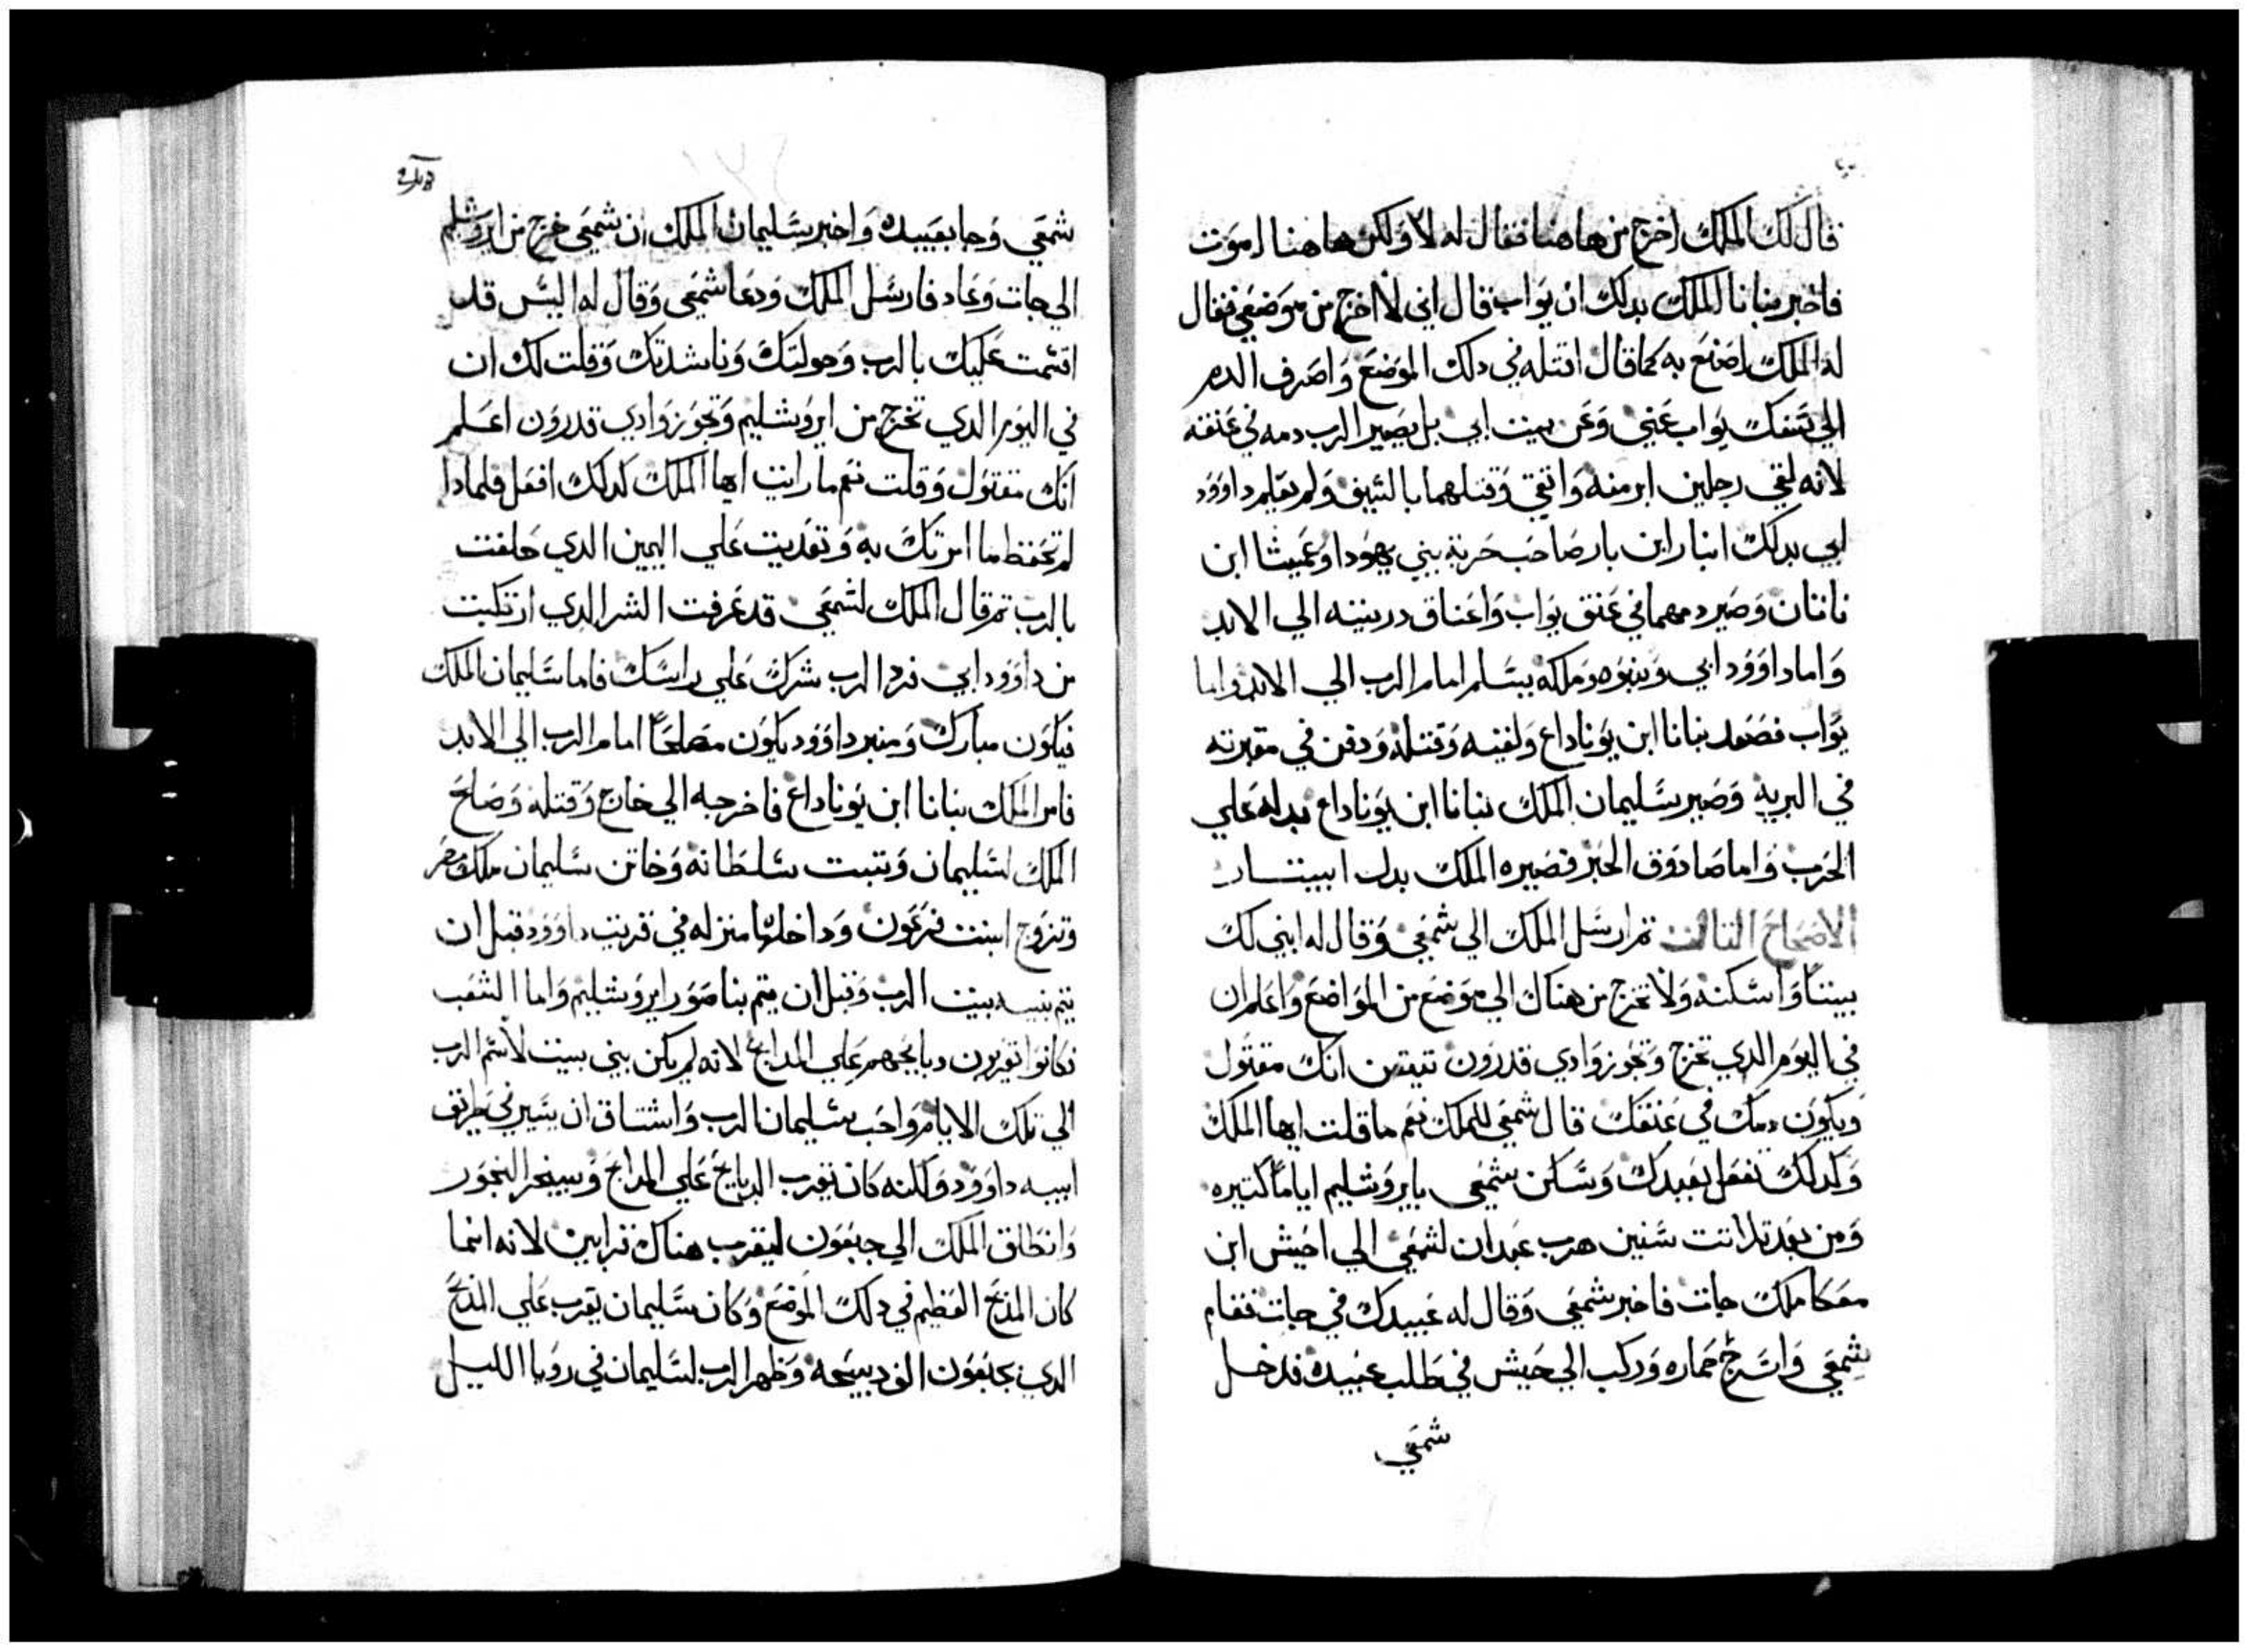 قال لك الملك اخرج من هاهنا فقال له لا ولكن هاهنا اموت
فاخبر بنانا الملك بدلك ان يواب قال اني لا اخرج من موضعي فقال
له الملك اصنع به كما قال اقتله في دلك الموضع واصرف الدم
الدي سفك يواب عني وعن بيت ابي بل يصير الرب دمه في عنقه
لانه لقي رجلين ابر منه واتقي وقتلهما بالسيف ولم يعلم داوود
ابي بدلك ابنار ابن بار صاحب حربة بني يهودا وعميشا ابن
ناتان وصير دمهما في عنق يواب واعناق دريته الي الابد
واما داوود ابي وبنوه وملكه يسلم امام الرب الي الابد واما
يواب فصعد بنانا ابن يوناداع ولقيه وقتله ودفن في مقبرته
في البرية وصير سليمان الملك بنانا ابن يوناداع بداله علي
الحرب واما صادوق الحبر فصيره الملك بدل ابيتار
الاصحاح التالت تم ارسل الملك الي شمعي وقال له ابني لك
بيتاً واسكنه ولا تخرج من هناك الي موضع من المواضع واعلم ان
في اليوم الدي تخرج وتجوز وادي قدرون تيقن انك مقتول
ويكون دمك في عنقك قال شمعي للملك نعم ما قلت ايها الملك
وكدلك نفعل بعبدك وسكن شمعي بايروشليم اياماً كتيره
ومن بعد تلاتت سنين هرب عبدان لشمعي الي اخيش ابن
معكا ملك جات فاخبر شمعي وقال له عبيدك في جات فقام
شمعي واسرج حماره وركب الي حيش في طلب عبيده فدخل
شمعي
شمعي وجا بعبيده واخبر سليمان الملك ان شمعي خرج من ايروشلم
الي جات وعاد فارسل الملك ودعا شمعي وقال له اليس قد
اقسمت عليك بالرب وحولتك وناشدتك وقلت لك ان
في اليوم الدي تخرج من ايروشليم وتجوز وادي قدرون اعلم
انك مقتول وقلت نعم ما رايت ايها الملك كدلك افعل فلمادا
لم تحفظ ما امرتك به وتعديت علي اليمين الدي حلفت
بالرب تم قال الملك لشمعي قد عرفت الشر الدي ارتكبت
من داوود ابي فرد الرب شرك علي راسك فاما سليمان الملك
فيكون مبارك ومنبر داوود يكون مصلحاً امام الرب الي الابد
فامر الملك بنانا ابن يوناداع فاخرجه الي خارج وقتله وصلح
الملك لسليمان وتبتت سلطانه وخاتن سليمان ملك مصر
وتزوج ابنت فرعون وداخلها منزله في قريت داوود قبل ان
يتم بنيه بيت الرب وقبل ان يتم بنا صور ايروشليم واما الشعب
فكانوا يقربون دبايحهم علي المدابح لانه لم يكن بني بيت لاسم الرب
الي تلك الايام واحب سليمان الرب واشتاق ان يسير في طريق
ابيه داوود ولكنه كان يقرب الدبايح علي المدابح ويبخر البخور
وانطلق الملك الي جبعون ليقرب هناك قرابين لانه انما
كان المدبح العظيم في دلك الموضع وكان سليمان يقرب علي المدبح
الدي بجبعون الف دبيحه وظهر الرب لسليمان في رويا الليل